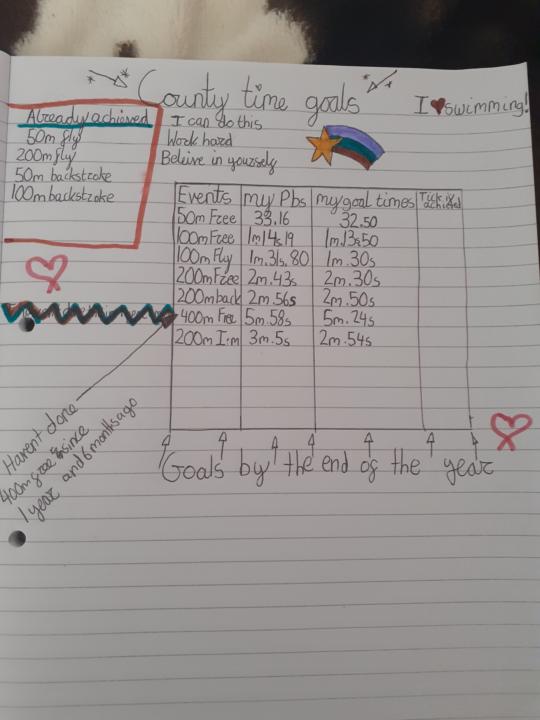 County time goals
I ♥ swimming!
Already achieved
50m fly
200m fly
50m backstroke
100m backstroke
I can do this
Work hard
Beluive in yourself
Events my Pbs my goal times Tick if achieved
50m Free 33.16 32.50
100m Free 1m14s19 1m.13s50
100m Fly 1m.31s.80 1m.30s
200m Free 2m.43s 2m.30s
200m back 2m.56s 2m.50s
400m Free 5m.58s 5m.24s
200m I.m 3m.5s 2m.54s
Havent done
400m free since
1 year and 6 months ago
Goals by the end of the year